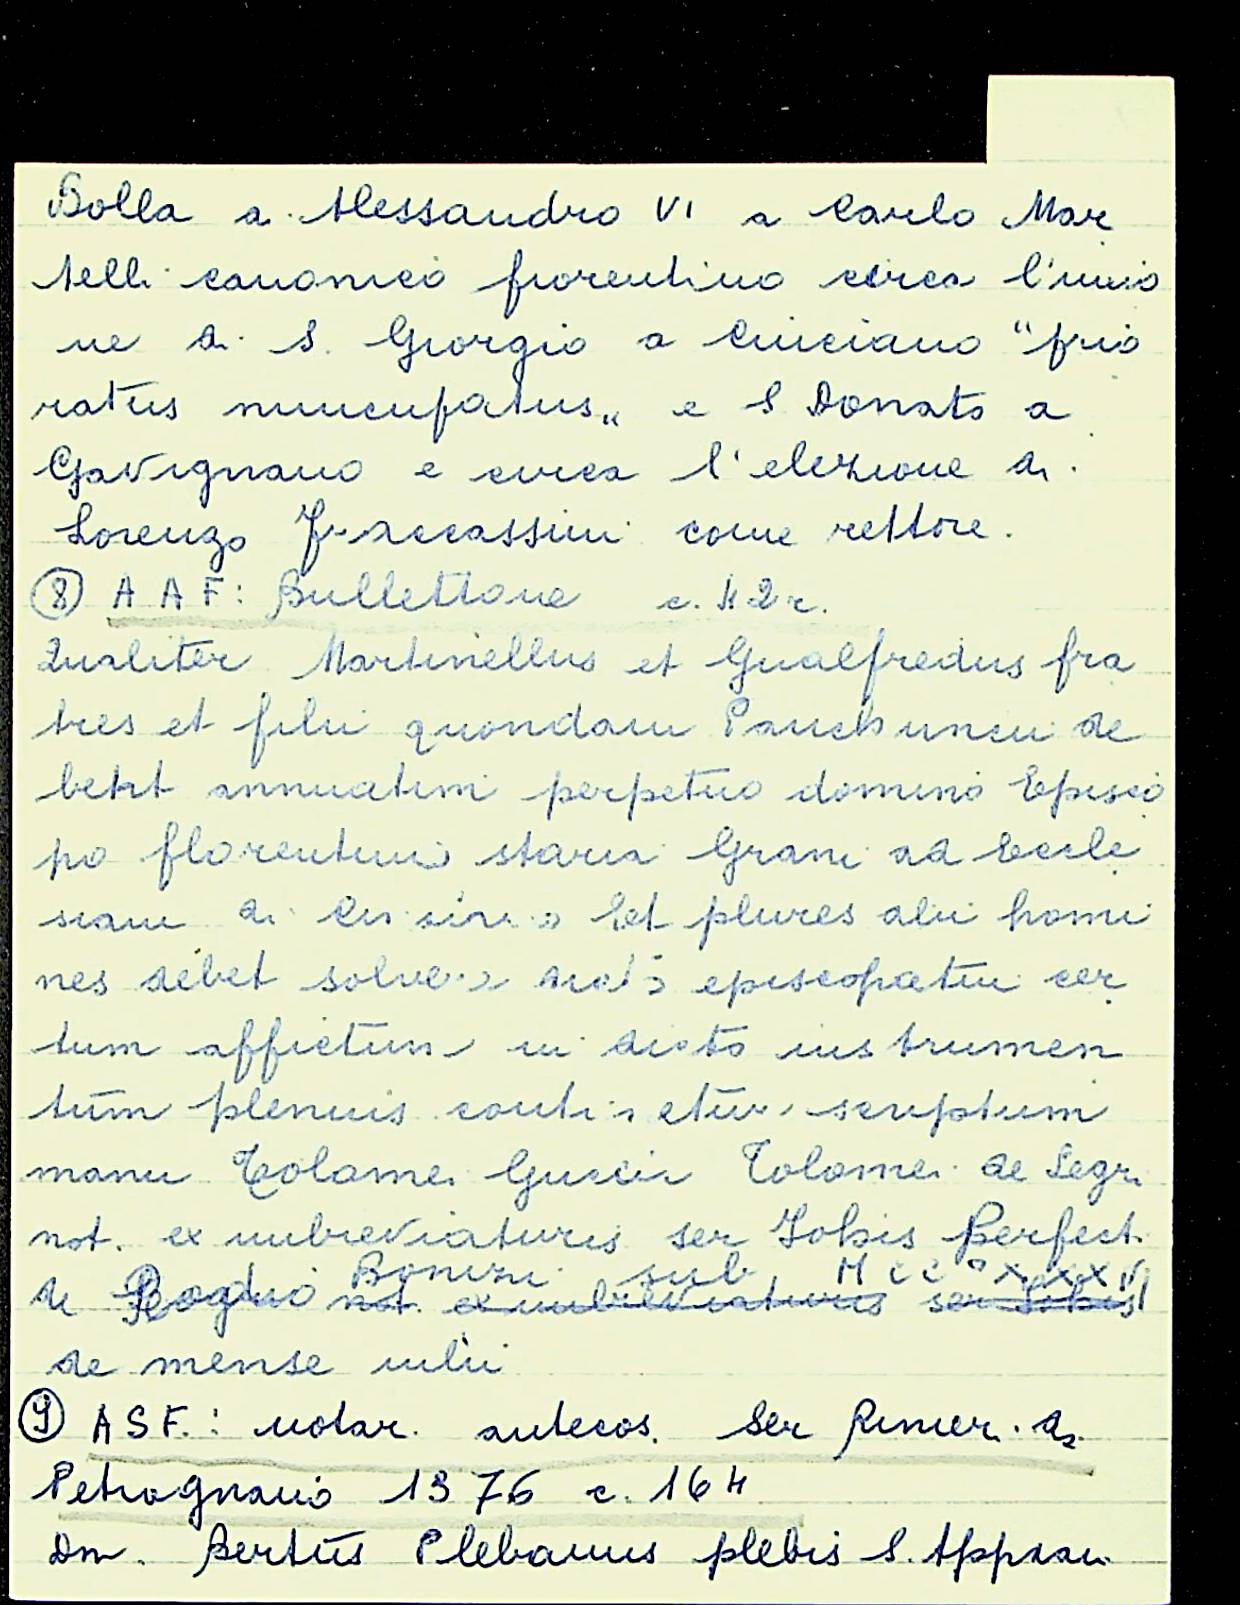 Bolla a Alessandro VI a Carlo Mar
telli canonico fiorentino circa l'unio
ne di S. Giorgio a Cinciano "prio
ratus nuncupatus„ e S Donato a
Gavignano e circa l'elezione di
Lorenzo Fraccassini come rettore.
⑧ A A F: Bullettone c. 42 r.
Qualiter Martinellus et Gualfredus fra
tres et filii quondam de
bent annuatim perpetuo domino Episco
po florentino staria Grani ad Eccle
siam di Et plures alii homi
nes debet solvere dicto episcopatui cer
tum affictum in dicto instrumen
tum plenius continetur scriptum
manu Tolomei Tolomei de Legri
not. ex imbreviaturis ser Iobis Perfecti
Bonizi sub MCC°XXXVI
de not. ex imbreviaturis ser Iobis
de mense iulii
⑨ ASF.: notar. antecos. Ser Rinieri di
Petrognano 1376 c. 164
Dn. Bertus Plebanus plebis S. Appian